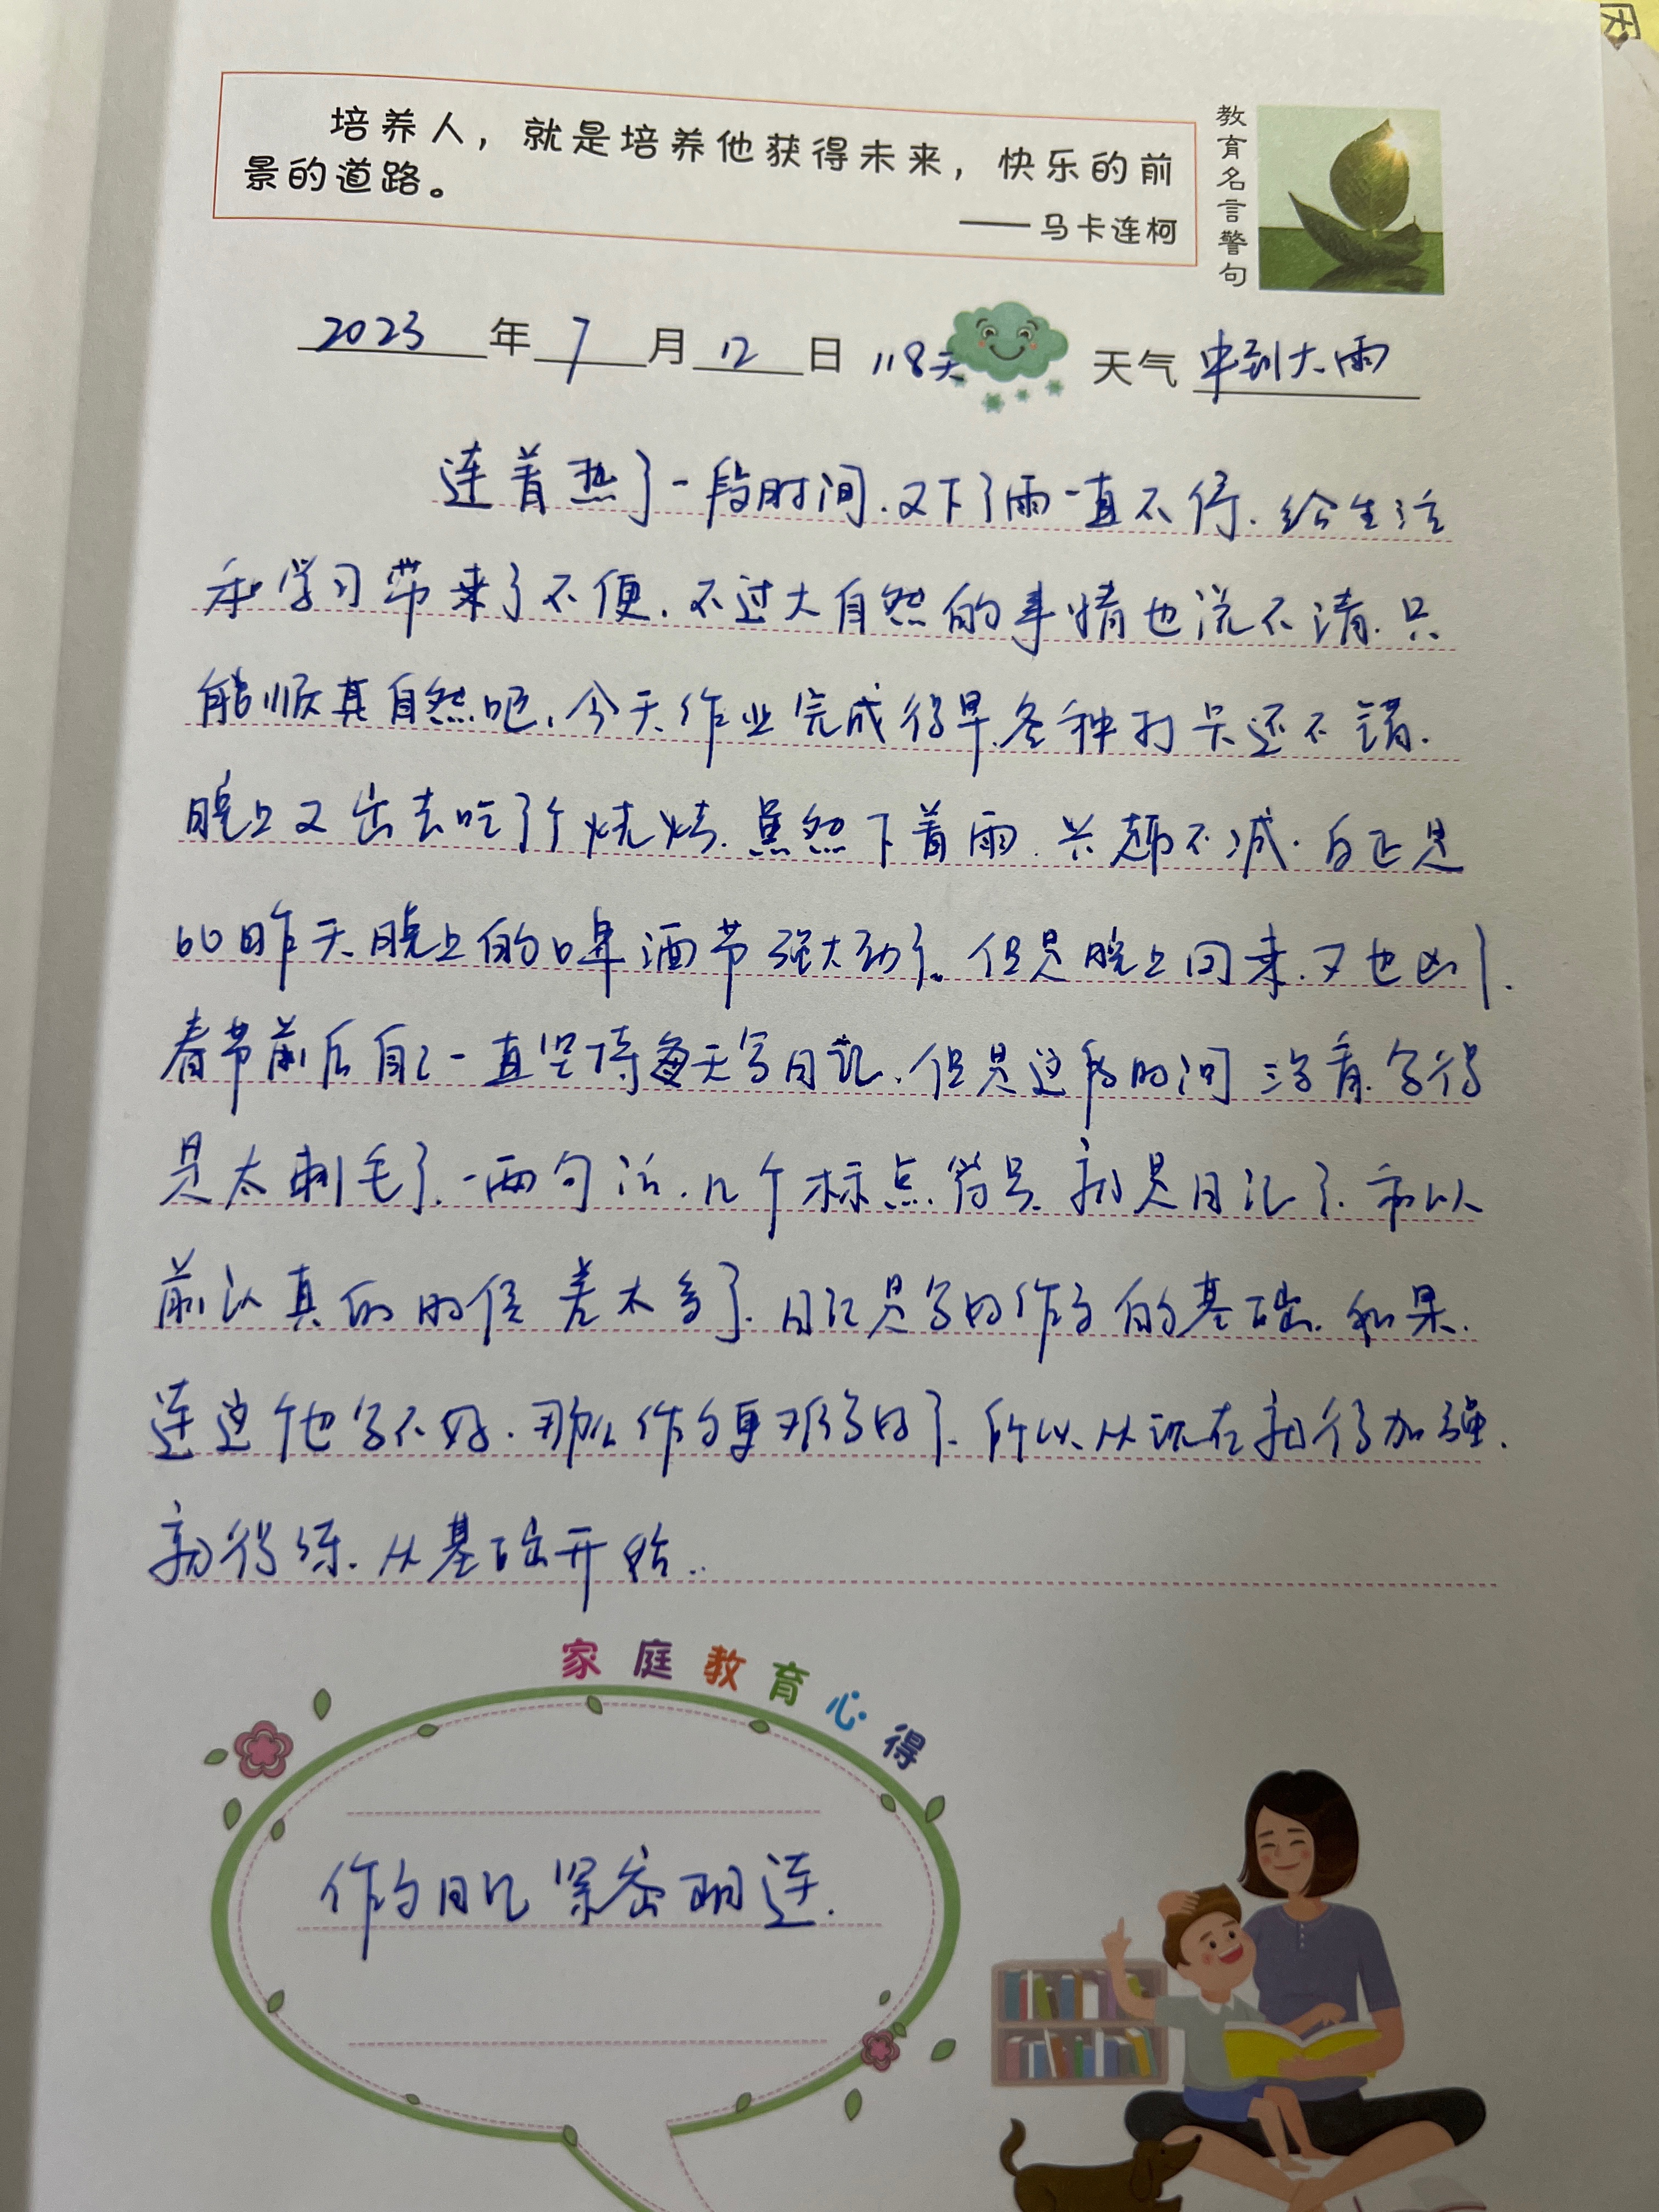 培养人，就是培养他获得未来，快乐的前
景的道路。
——马卡连柯
教育名言警句
2023年7月12日 118天 天气 中到大雨
连着热了一段时间.又下了雨一直不停.给生活
和学习带来了不便.不过大自然的事情也说不清.只
能顺其自然吧.今天作业完成得早.各种打卡还不错.
晚上又出去吃了个烧烤.虽然下着雨.兴趣不减.自正是
比昨天晚上的啤酒节强大多了.但是晚上回来.又也凶了.
春节前后自己一直坚持每天写日记.但是这段时间没看.写得
是太刺毛了.一两句话.几个标点符号.就是日记了.和以
前认真的时候差太多了.日记是写好作文的基础.如果.
连这个也写不好.那么作文更难写好了.所以从现在就得加强.
就得练.从基础开始..
家庭教育心得
作文日记紧密相连.